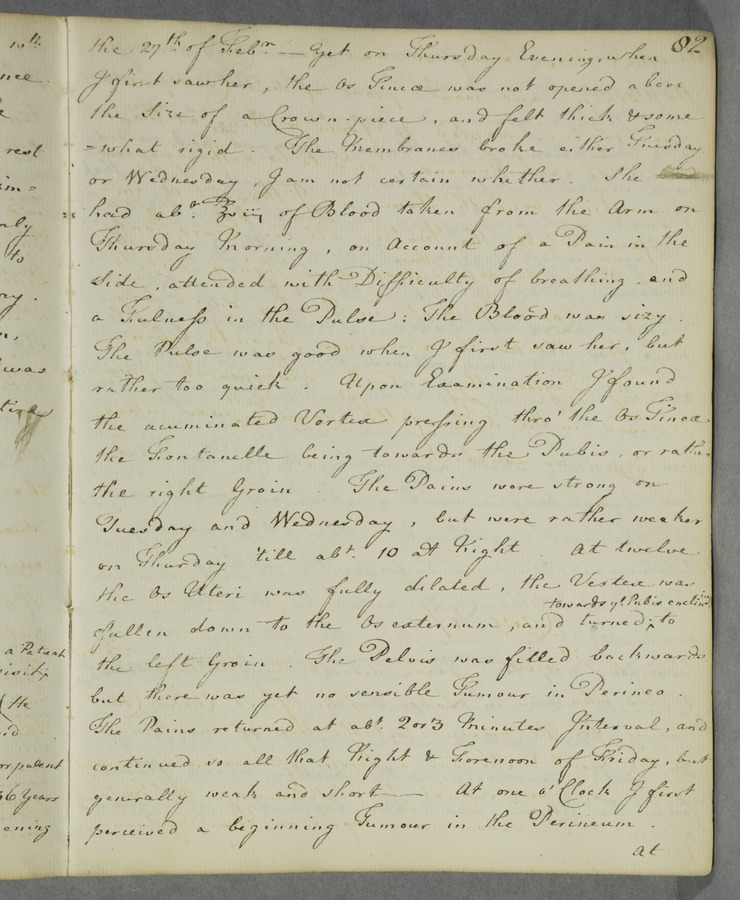 82
the 27th of Febr. — Yet on Thursday Evening, when
I first saw her, the Os Tincæ was not opened above
the Size of a Crown-piece, and felt thick & some
=what rigid. The Membranes broke either Tuesday
or Wednesday, I am not certain whether. She
had abt. ℥viij of Blood taken from the Arm on
Thursday Morning, on Account of a Pain in the
Side, attended with Difficulty of breathing, and
a Fulness in the Pulse: The Blood was sizy.
The Pulse was good when I first saw her, but
rather too quick. Upon Examination I found
the acuminated Vortex pressing thro' the Os Tincæ.
the Fontanelle being towards the Pubis, or rather
the right Groin. The Pains were strong on
Tuesday and Wednesday, but were rather weaker
on Thurday 'till abt. 10 at Night. At twelve
the Os Uteri was fully dilated, the Vertex was
towards ye. Pubis
fallen down to the Os externum, and turned ^ to
the left Groin. The Pelvis was filled backwards
but there was yet no sensible Tumour in Perineo.
The Pains returned at abt. 2 or 3 Minutes Interval, and
continued so all that Night & Forenoon of Friday, but
generally weak and short — At one o'Clock I first
perceived a beginning Tumour in the Perineum.
at
10th
nce.
rest
im=
nly
to
ay.
was
a Patient
He
orpulent
36 Years
ening